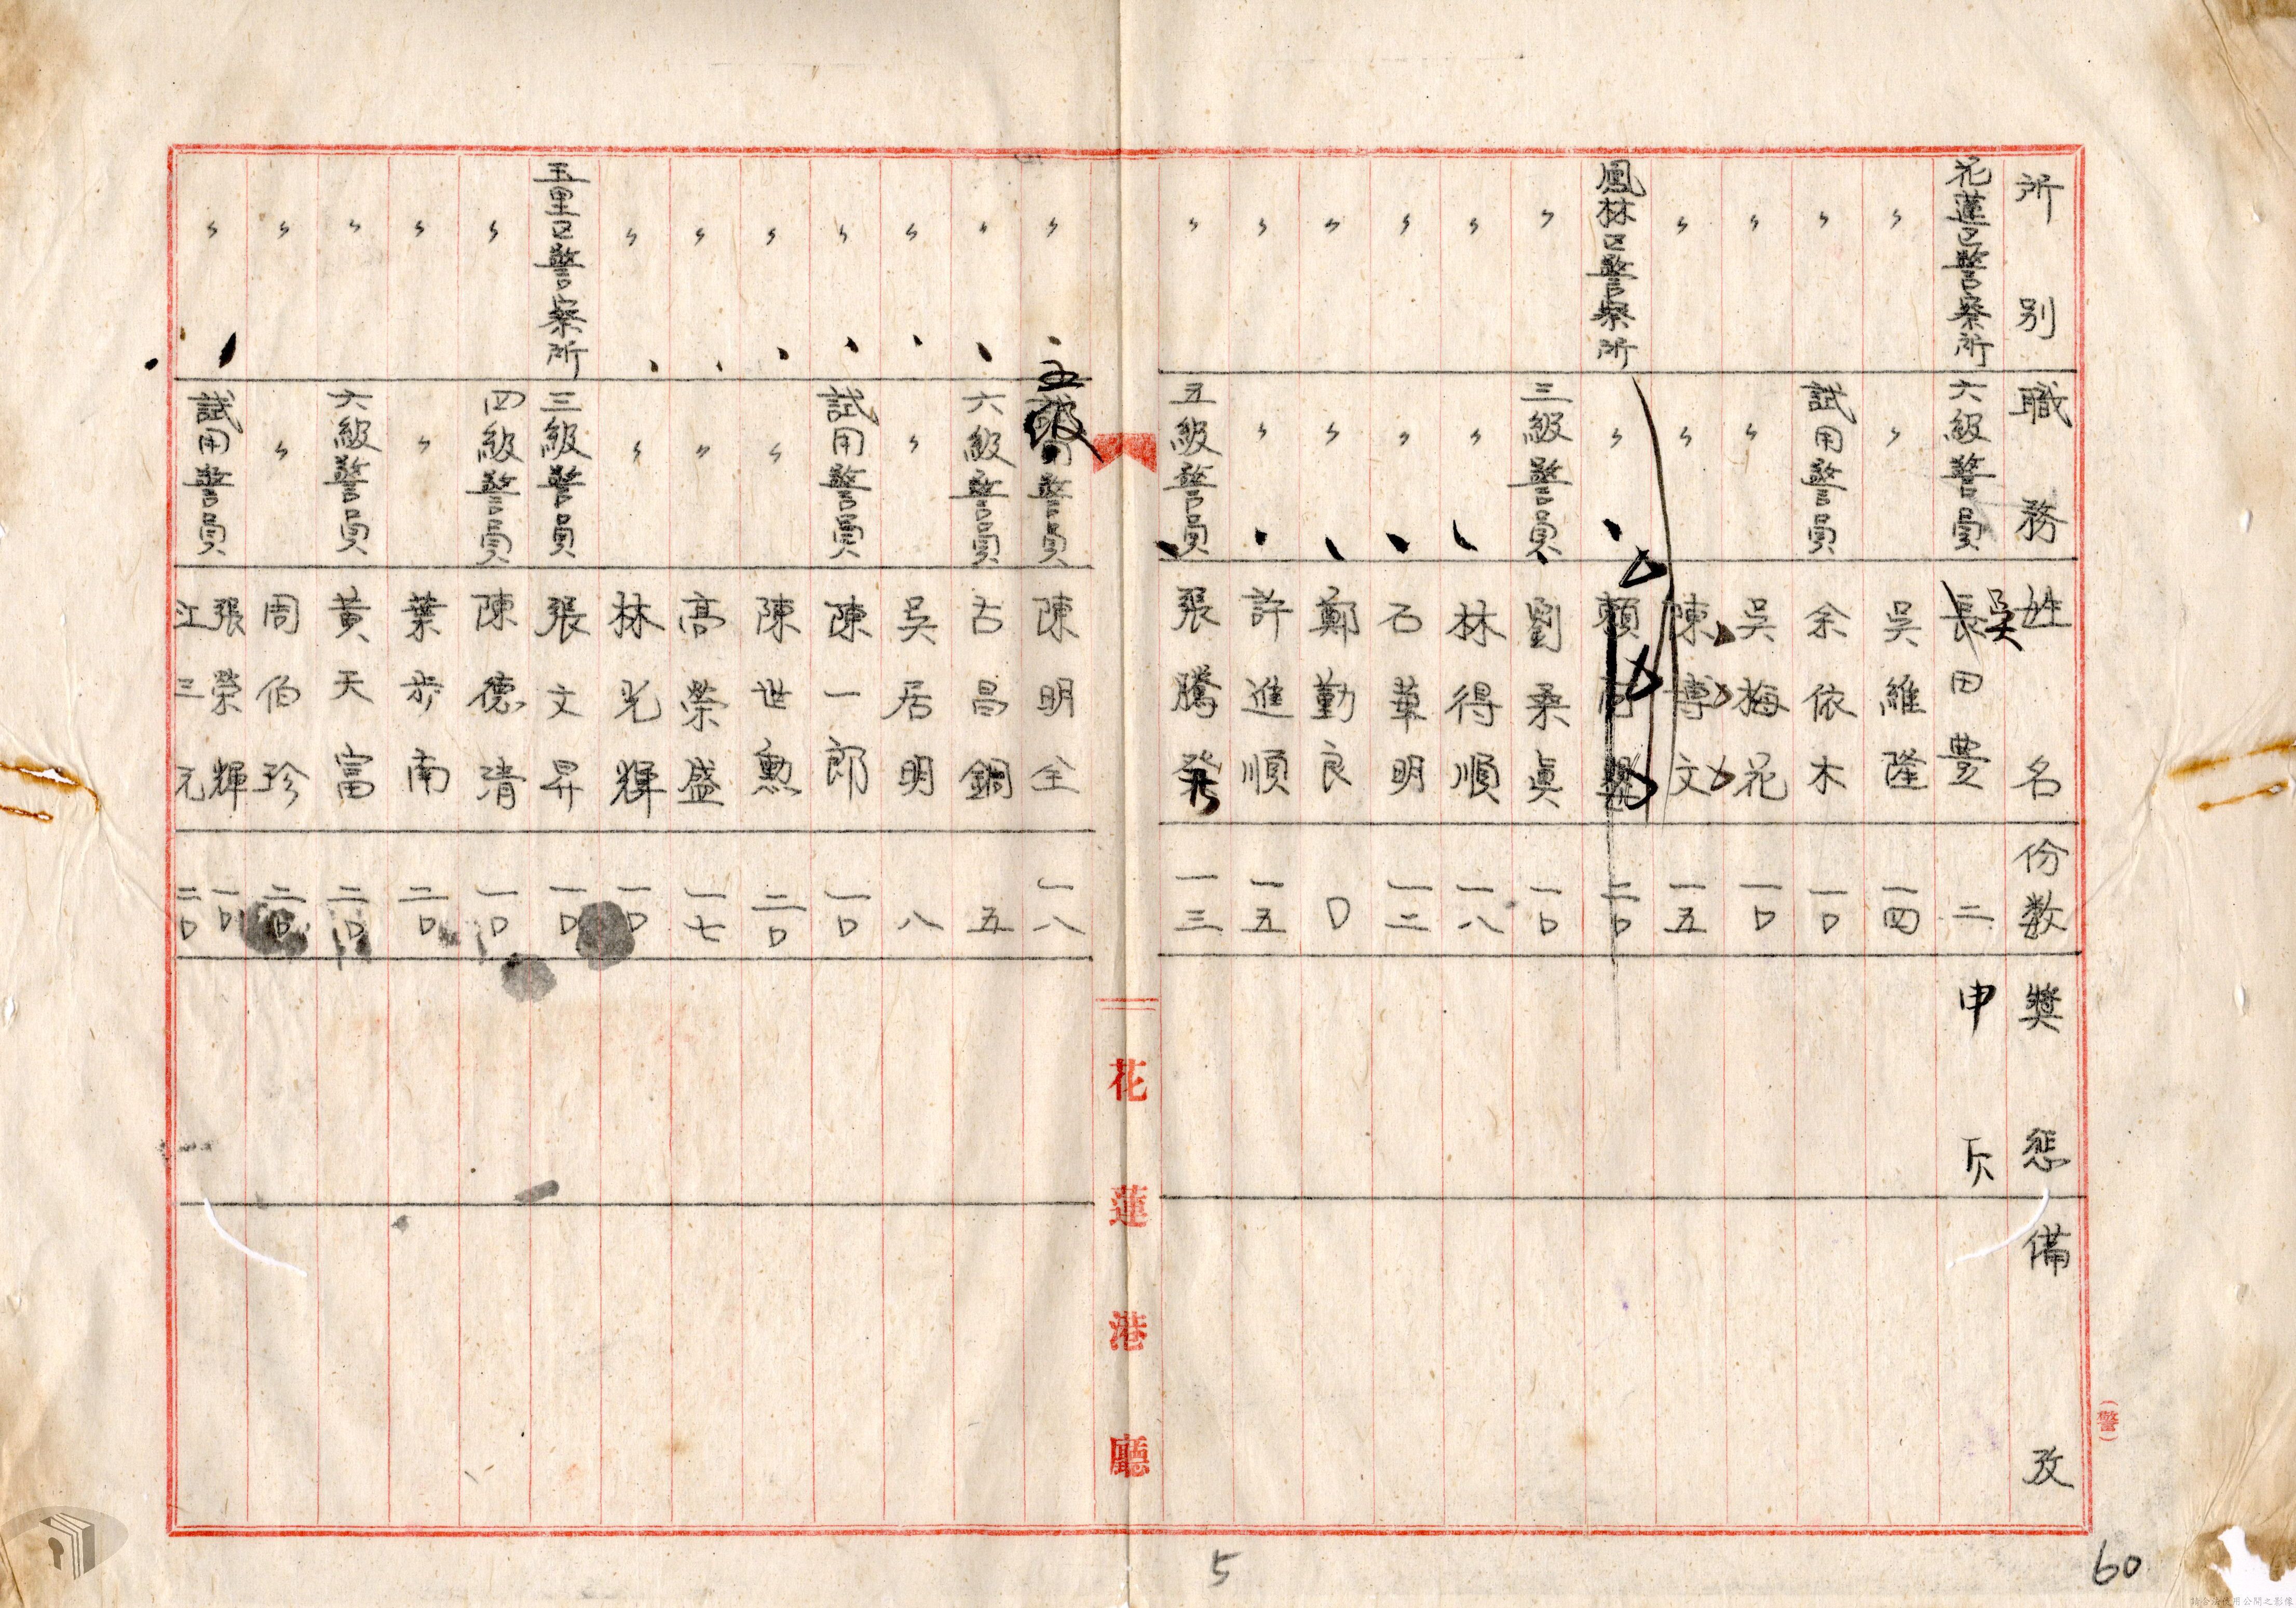 所別 職務 姓名 份数 獎懲 備攷
花蓮区警察所 六級警員 長田豊 吳 二 申斥
〃 〃 吳維隆 一四
〃 試用警員 余依木 一〇
〃 〃 吳梅花 一〇
〃 〃 陳博文 一五
鳳林区警察所 〃 賴 二〇
〃 三級警員 劉桑眞 一〇
〃 〃 林得順 一八
〃 〃 石華明 一二
〃 〃 鄭勤良 〇
〃 〃 許進順 一五
〃 五級警員 張騰発 一三
花蓮港廳
〃 五級警員 陳明全 一八
〃 六級警員 古昌銅 五
〃 〃 吳居明 八
〃 試用警員 陳一郎 一〇
〃 〃 陳世勲 二〇
〃 〃 高榮盛 一七
〃 〃 林光輝 一〇
玉里区警察所 三級警員 張文昇 一〇
〃 四級警員 陳德清 一〇
〃 〃 葉步南 二〇
〃 六級警員 黃天富 二〇
〃 〃 周伯珍 二〇
〃 試用警員 張榮輝 一〇
江三元 二〇
(警)
5
60